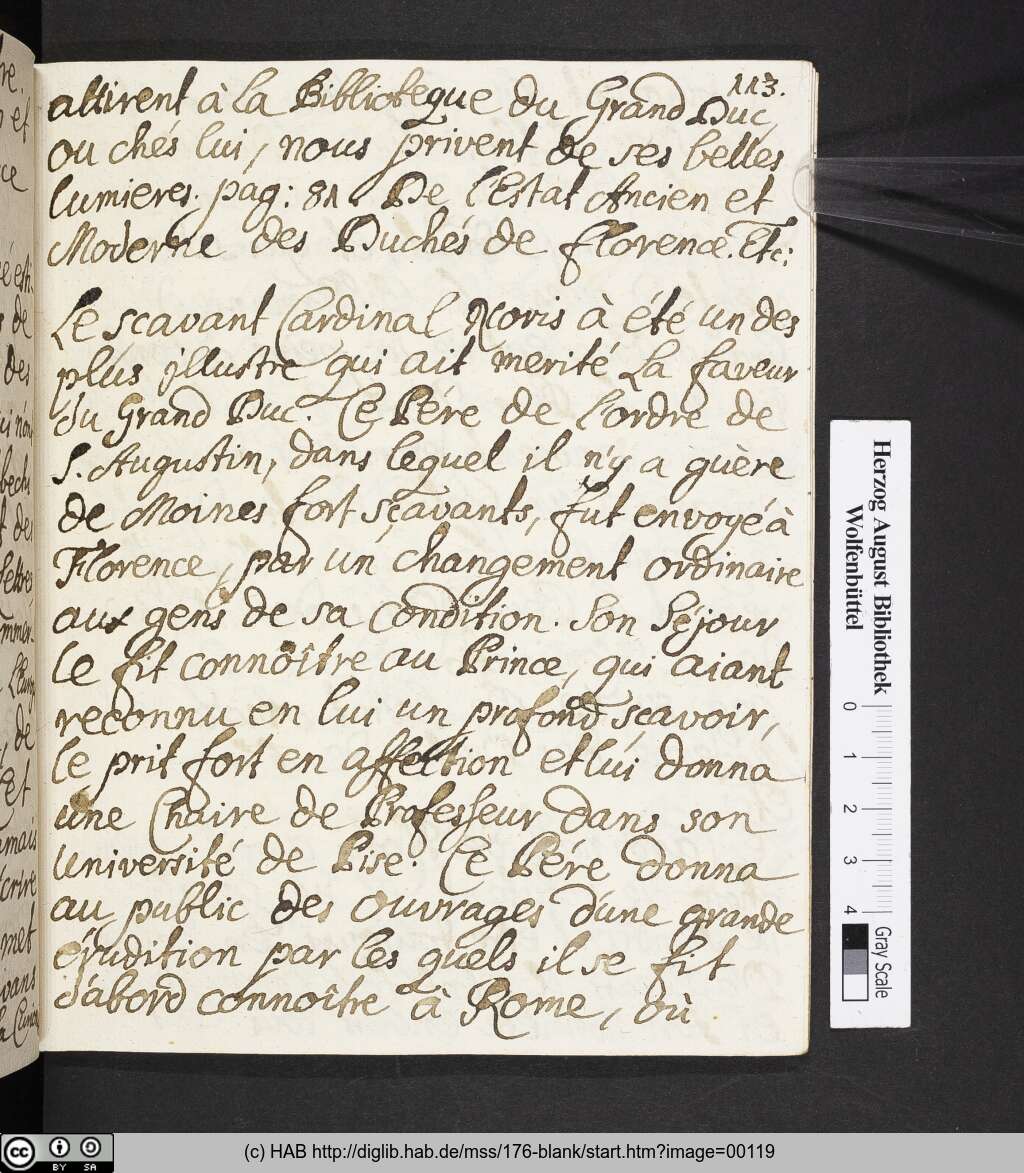 113.
attirent à la Biblioteque du Grand Duc,
ou chés lui, nous privent de ses belles
lumieres. pag: 81. De l'Estat Ancien et
Moderne des Duchés de florence. Etc:
Le sçavant Cardinal Noris à été un des
plus jllustre qui ait merité la faveur
du Grand Duc. Ce Pére de l'ordre de
S. Augustin, dans lequel il n'y a guère
de Moines fort sçavants, fut envoyé à
Florence, par un changement ordinaire
aux gens de sa Condition. Son Séjour
le fit connoître au Prince, qui aiant
reconnu en lui un profond sçavoir,
le prit fort en affection et lui donna
une Chaire de Professeur dans son
Université de Pise. Ce Pére donna
au public des Ouvrages d'une grande
érudition par les quels il se fit
d'abord connoître à Rome, où
Herzog August Bibliothek
Wolfenbüttel
0 1 2 3 4
Gray Scale
cc BY SA
(c) HAB http://diglib.hab.de/mss/176-blank/start.htm?image=00119